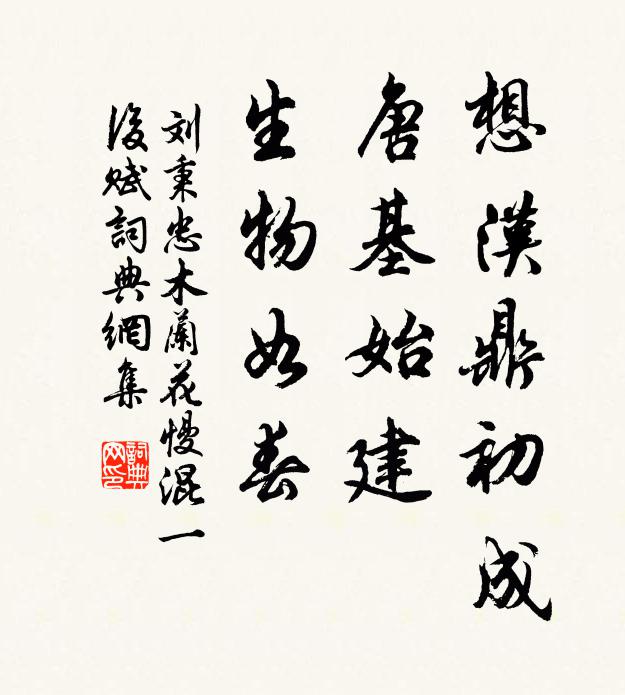 想漢鼎初成
唐基始建
生物如春
刘秉忠木蘭花慢混一
後赋詞典網集
詞典網印